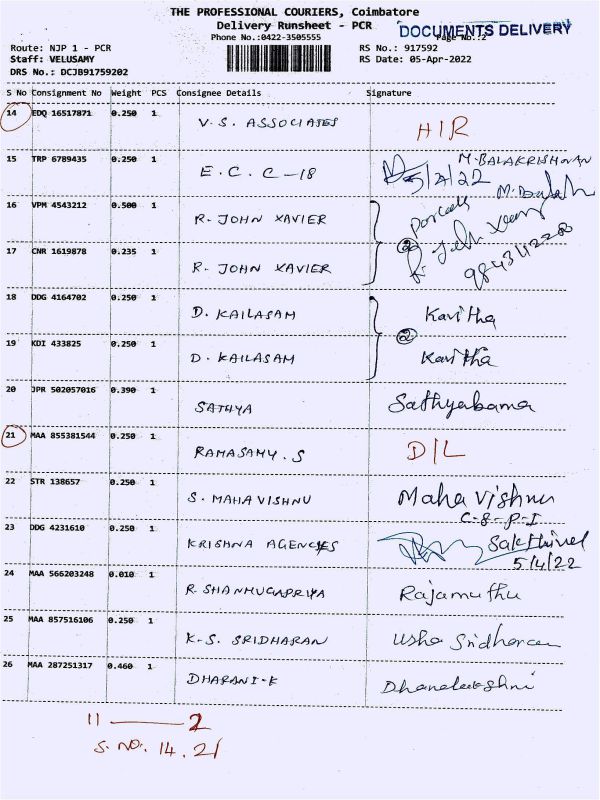 THE PROFESSIONAL COURIERS, Coimbatore
Delivery Runsheet - PCR
DOCUMENTS DELIVERY
Phone No.:0422-3505555
Page No.:2
Route: NJP 1 - PCR
RS No.: 917592
Staff: VELUSAMY
RS Date: 05-Apr-2022
DRS No.: DCJB91759202
S No Consignment No Weight PCS Consignee Details Signature
14 EDQ 16517871 0.250 1 V.S. ASSOCIATES H/R
15 TRP 6789435 0.250 1 E.C.C-18 M.BALAKRISHNAN
5/4/22
16 VPM 4543212 0.500 1 R. JOHN XAVIER
2
17 CNR 1619878 0.235 1 R. JOHN XAVIER
18 DDG 4164702 0.250 1 D. KAILASAM Kavitha
2
19 KDI 433825 0.250 1 D. KAILASAM Kavitha
20 JPR 502057016 0.390 1 SATHYA Sathyabama
21 MAA 855381544 0.250 1 RAMASAMY.S D/L
22 STR 138657 0.250 1 S. MAHAVISHNU Maha Vishnu
C-8-P-I
23 DDG 4231610 0.250 1 KRISHNA AGENCIES Sakthivel
5/4/22
24 MAA 566203248 0.010 1 R. SHANMUGAPRIYA Rajamuthu
25 MAA 857516106 0.250 1 K.S. SRIDHARAN Usha Sridharan
26 MAA 287251317 0.460 1 DHARANI-K Dhanalakshmi
11 — 2
S. NO. 14. 21